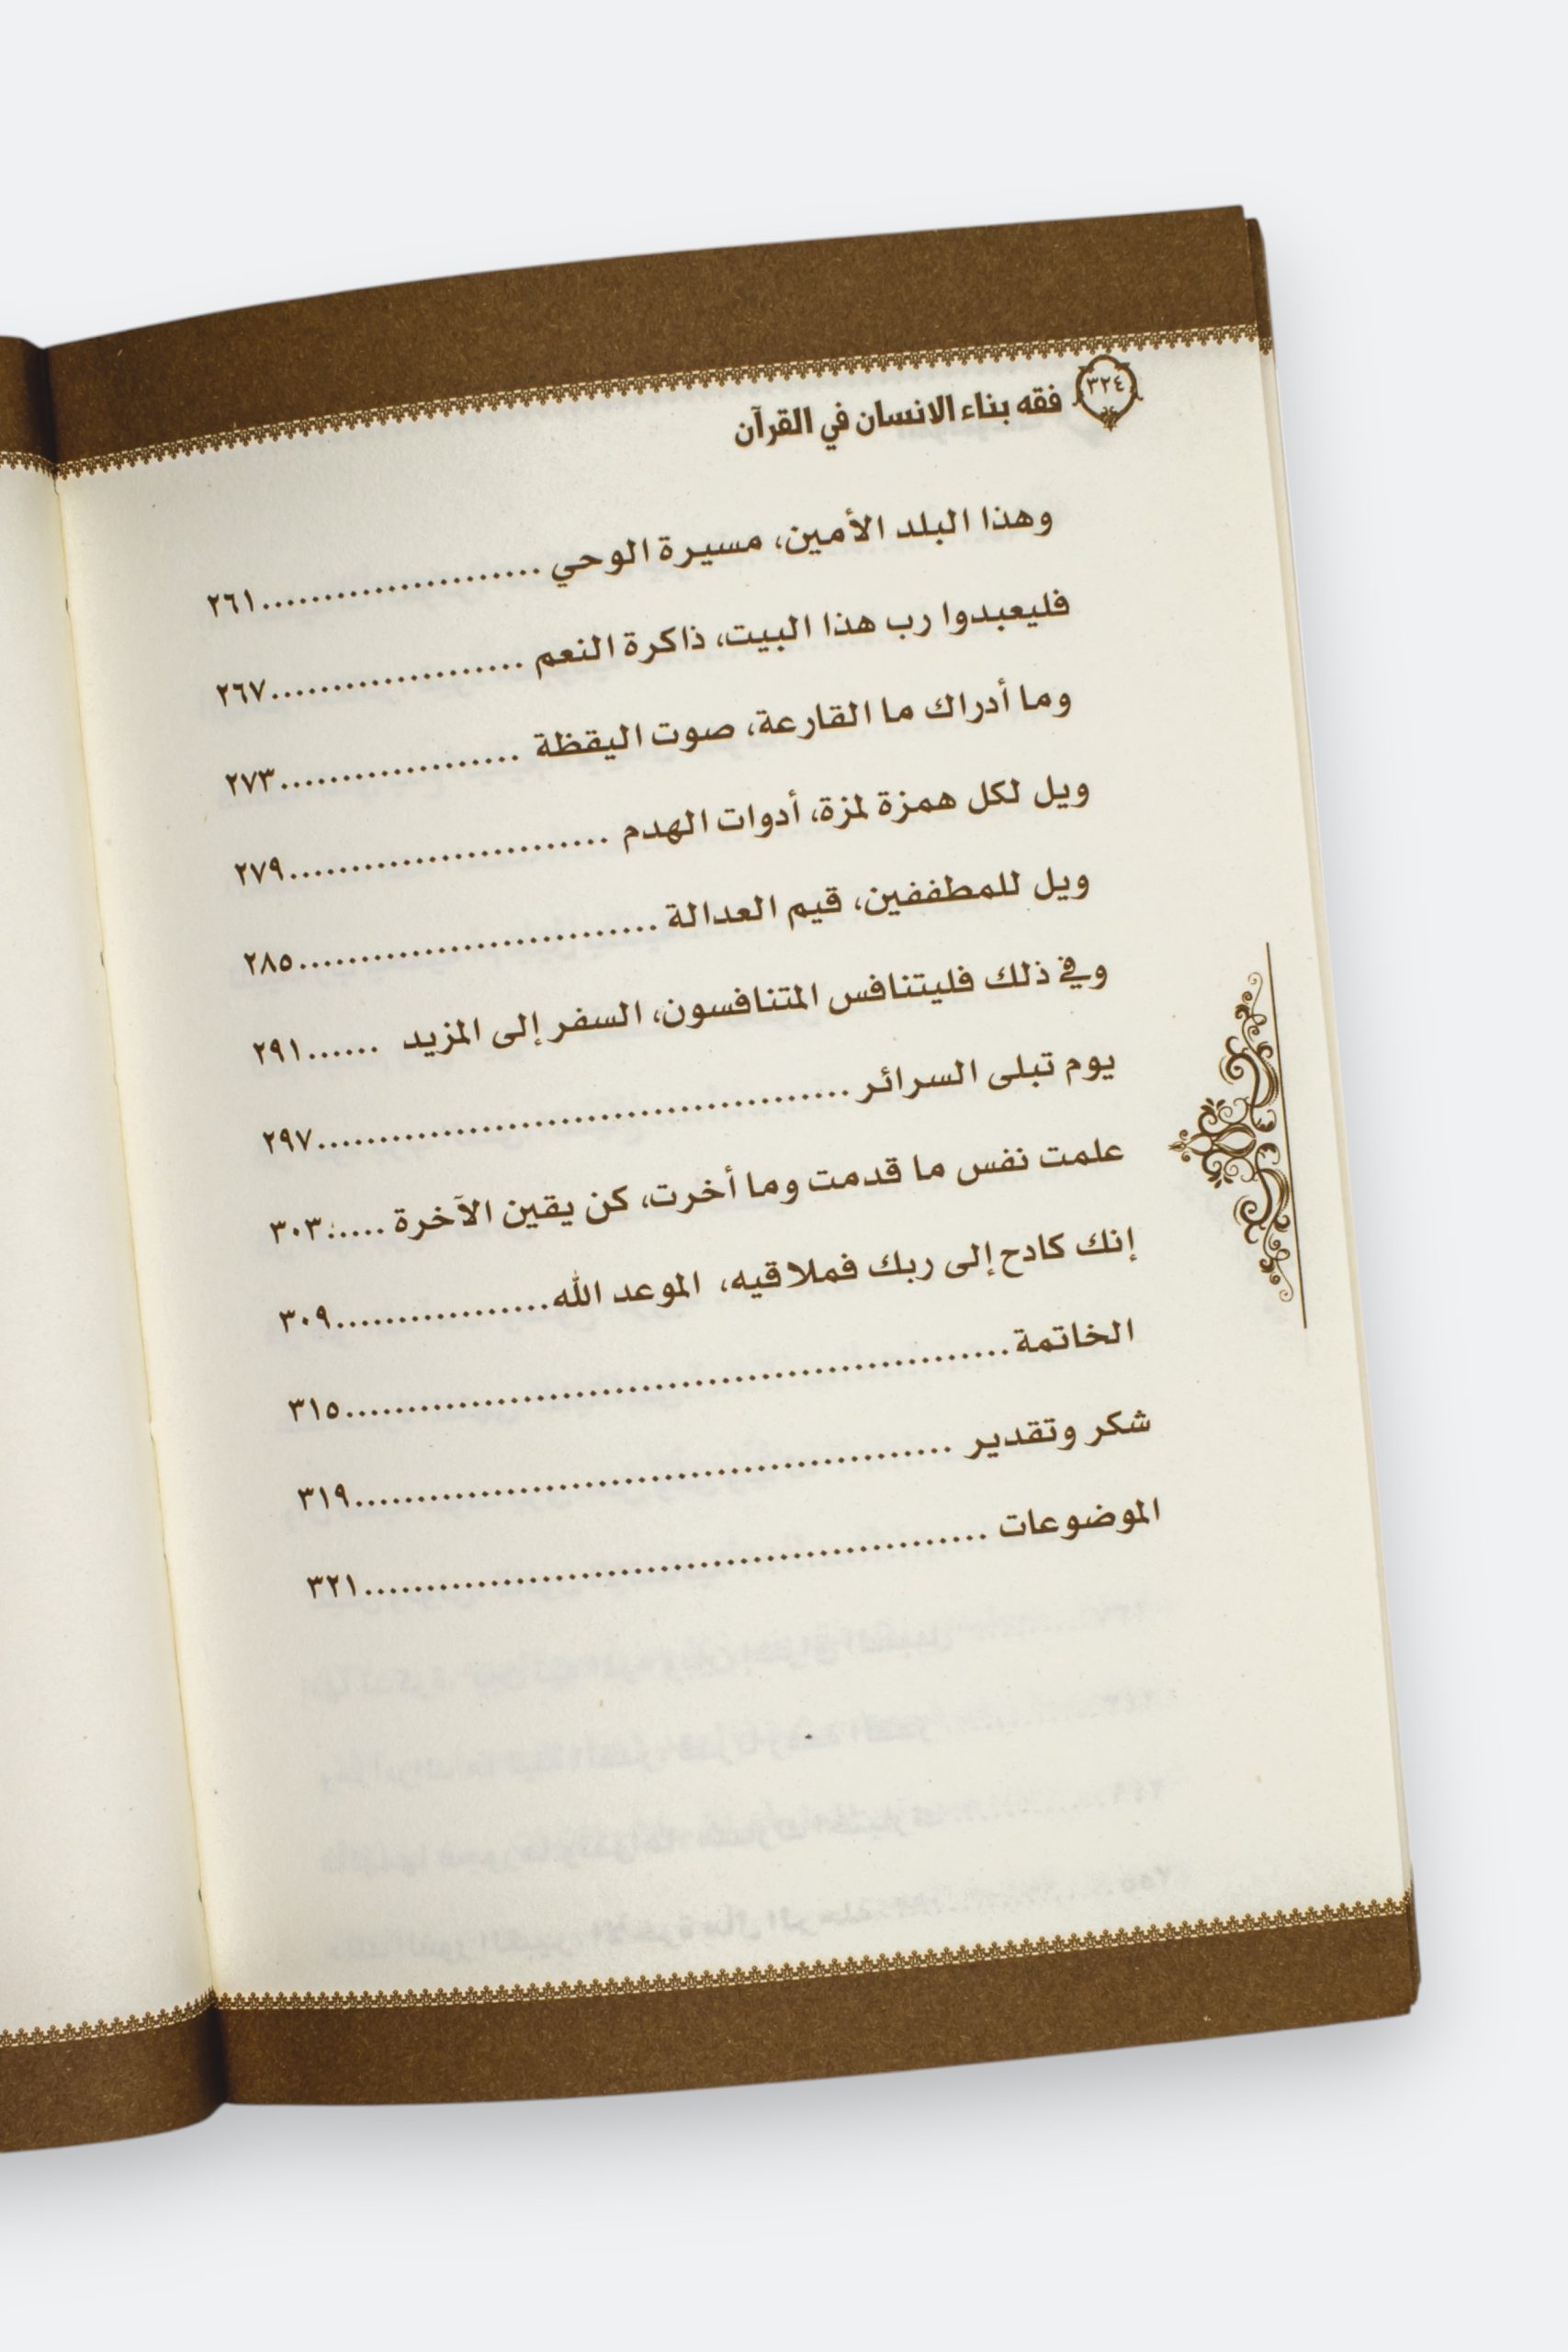 ٣٢٤
فقه بناء الانسان في القرآن
وهذا البلد الأمين، مسيرة الوحي ......................٢٦١
فليعبدوا رب هذا البيت، ذاكرة النعم ....................٢٦٧
وما أدراك ما القارعة، صوت اليقظة ...................٢٧٣
ويل لكل همزة لمزة، أدوات الهدم .........................٢٧٩
ويل للمطففين، قيم العدالة ............................٢٨٥
وفي ذلك فليتنافس المتنافسون، السفر إلى المزيد ......٢٩١
يوم تبلى السرائر ..........................................٢٩٧
علمت نفس ما قدمت وما أخرت، كن يقين الآخرة .....٣٠٣
إنك كادح إلى ربك فملاقيه، الموعد الله.................٣٠٩
الخاتمة....................................................٣١٥
شكر وتقدير ...............................................٣١٩
الموضوعات .................................................٣٢١